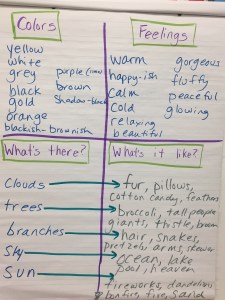 Colors
yellow
white
grey
black
gold
orange
blackish-brownish
purple
brown
Shadow-black
Feelings
warm
happy-ish
calm
cold
relaxing
beautiful
gorgeous
fluffy
peaceful
glowing
What's there?
What's it like?
Clouds
fur, pillows,
cotton candy, feathers
trees
broccoli, tall people
giants, thistle, broom
branches
hair, snakes,
pretzels, arms, skewer
Sky
ocean, lake
pool, heaven
Sun
fireworks, dandelions
fire, sand